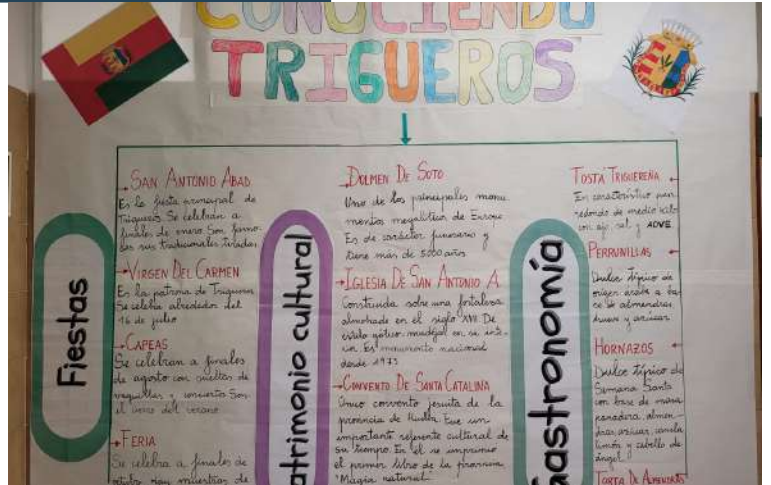 CONOCIENDO
TRIGUEROS
Fiestas
SAN ANTONIO ABAD
Es la fiesta principal de
Trigueros. Se celebran a
finales de enero. Son famo-
sas sus tradicionales tiradas
VIRGEN DEL CARMEN
Es la patrona de Trigueros
Se celebra alrededor del
16 de julio
CAPEAS
Se celebran a finales
de agosto con sueltas de
vaquillas y concierto. Son
el cierre del verano
FERIA
Se celebra a finales de
octubre. Hay muestras de
atrimonio cultural
DOLMEN DE SOTO
Uno de los principales monu
mentos megalíticos de Europa
Es de carácter funerario y
tiene más de 5000 años
IGLESIA DE SAN ANTONIO A.
Construida sobre una fortaleza
almohade en el siglo
estilo gótico-mudéjar en su inte-
rior. Es monumento nacional
desde 1973
CONVENTO DE SANTA CATALINA
Único convento jesuita de la
provincia de Huelva. Fue un
importante referente cultural de
su tiempo. En él se imprimió
el primer libro de la provincia
"Magia natural"
Gastronomía
TOSTÁ TRIGUEREÑA
Es característico pan
redondo de medio kilo
con ajo, sal y AOVE
PERRUNILLAS
Dulce típico de
origen árabe a ba-
se de almendras
huevo y azúcar
HORNAZOS
Dulce típico de
Semana Santa
con base de masa
panadera, almen-
dras, azúcar, canela
limón y cabello de
ángel
TORTA DE ALMENDRAS